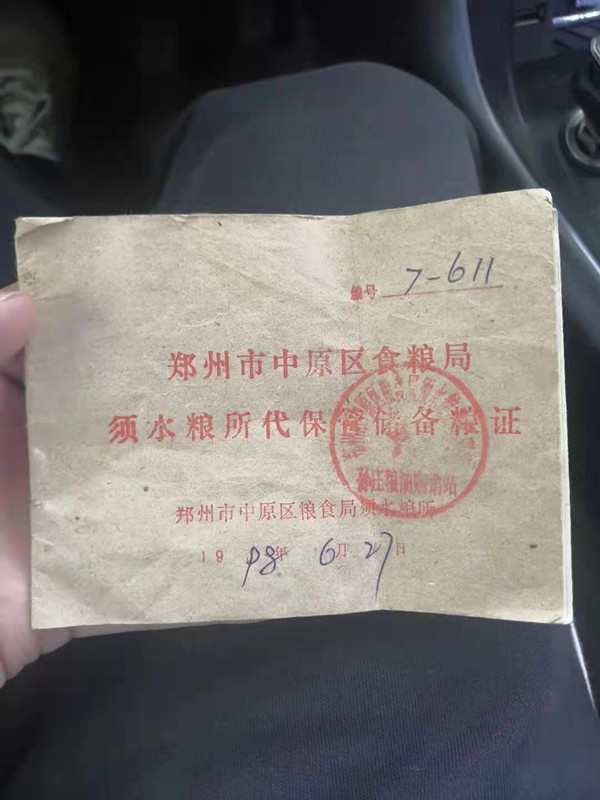 编号 7-611
郑州市中原区食粮局
须水粮所代保管储备粮证
孙庄粮油购销站
郑州市中原区粮食局须水粮所
1998年6月27日